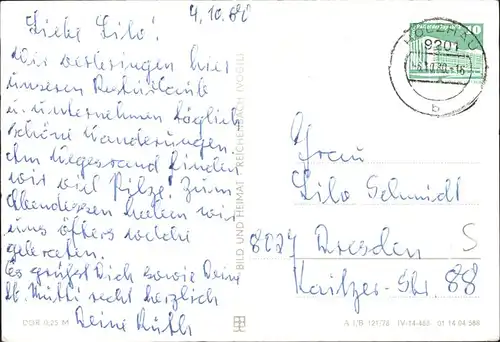 4.10.80
Liebe Lilo!
Wir verbringen hier
unseren Resturlaub
u. unternehmen täglich
schöne Wanderungen.
Am Wegesrand finden
wir viel Pilze. Zum
Abendessen haben wir
uns öfters welche
gebraten.
Es grüßt Dich sowie Deine
lb. Mutti recht herzlich
Deine Ruth
Frau
Lilo Schmidt
8027 Dresden S
Kaitzer-Str. 88
HOLZHAU
9201
-6.10.80-16
b
10
BILD UND HEIMAT REICHENBACH (VOGTL)
0,25 M
A 1/B 121/78 IV-14-483 01 14 04 566